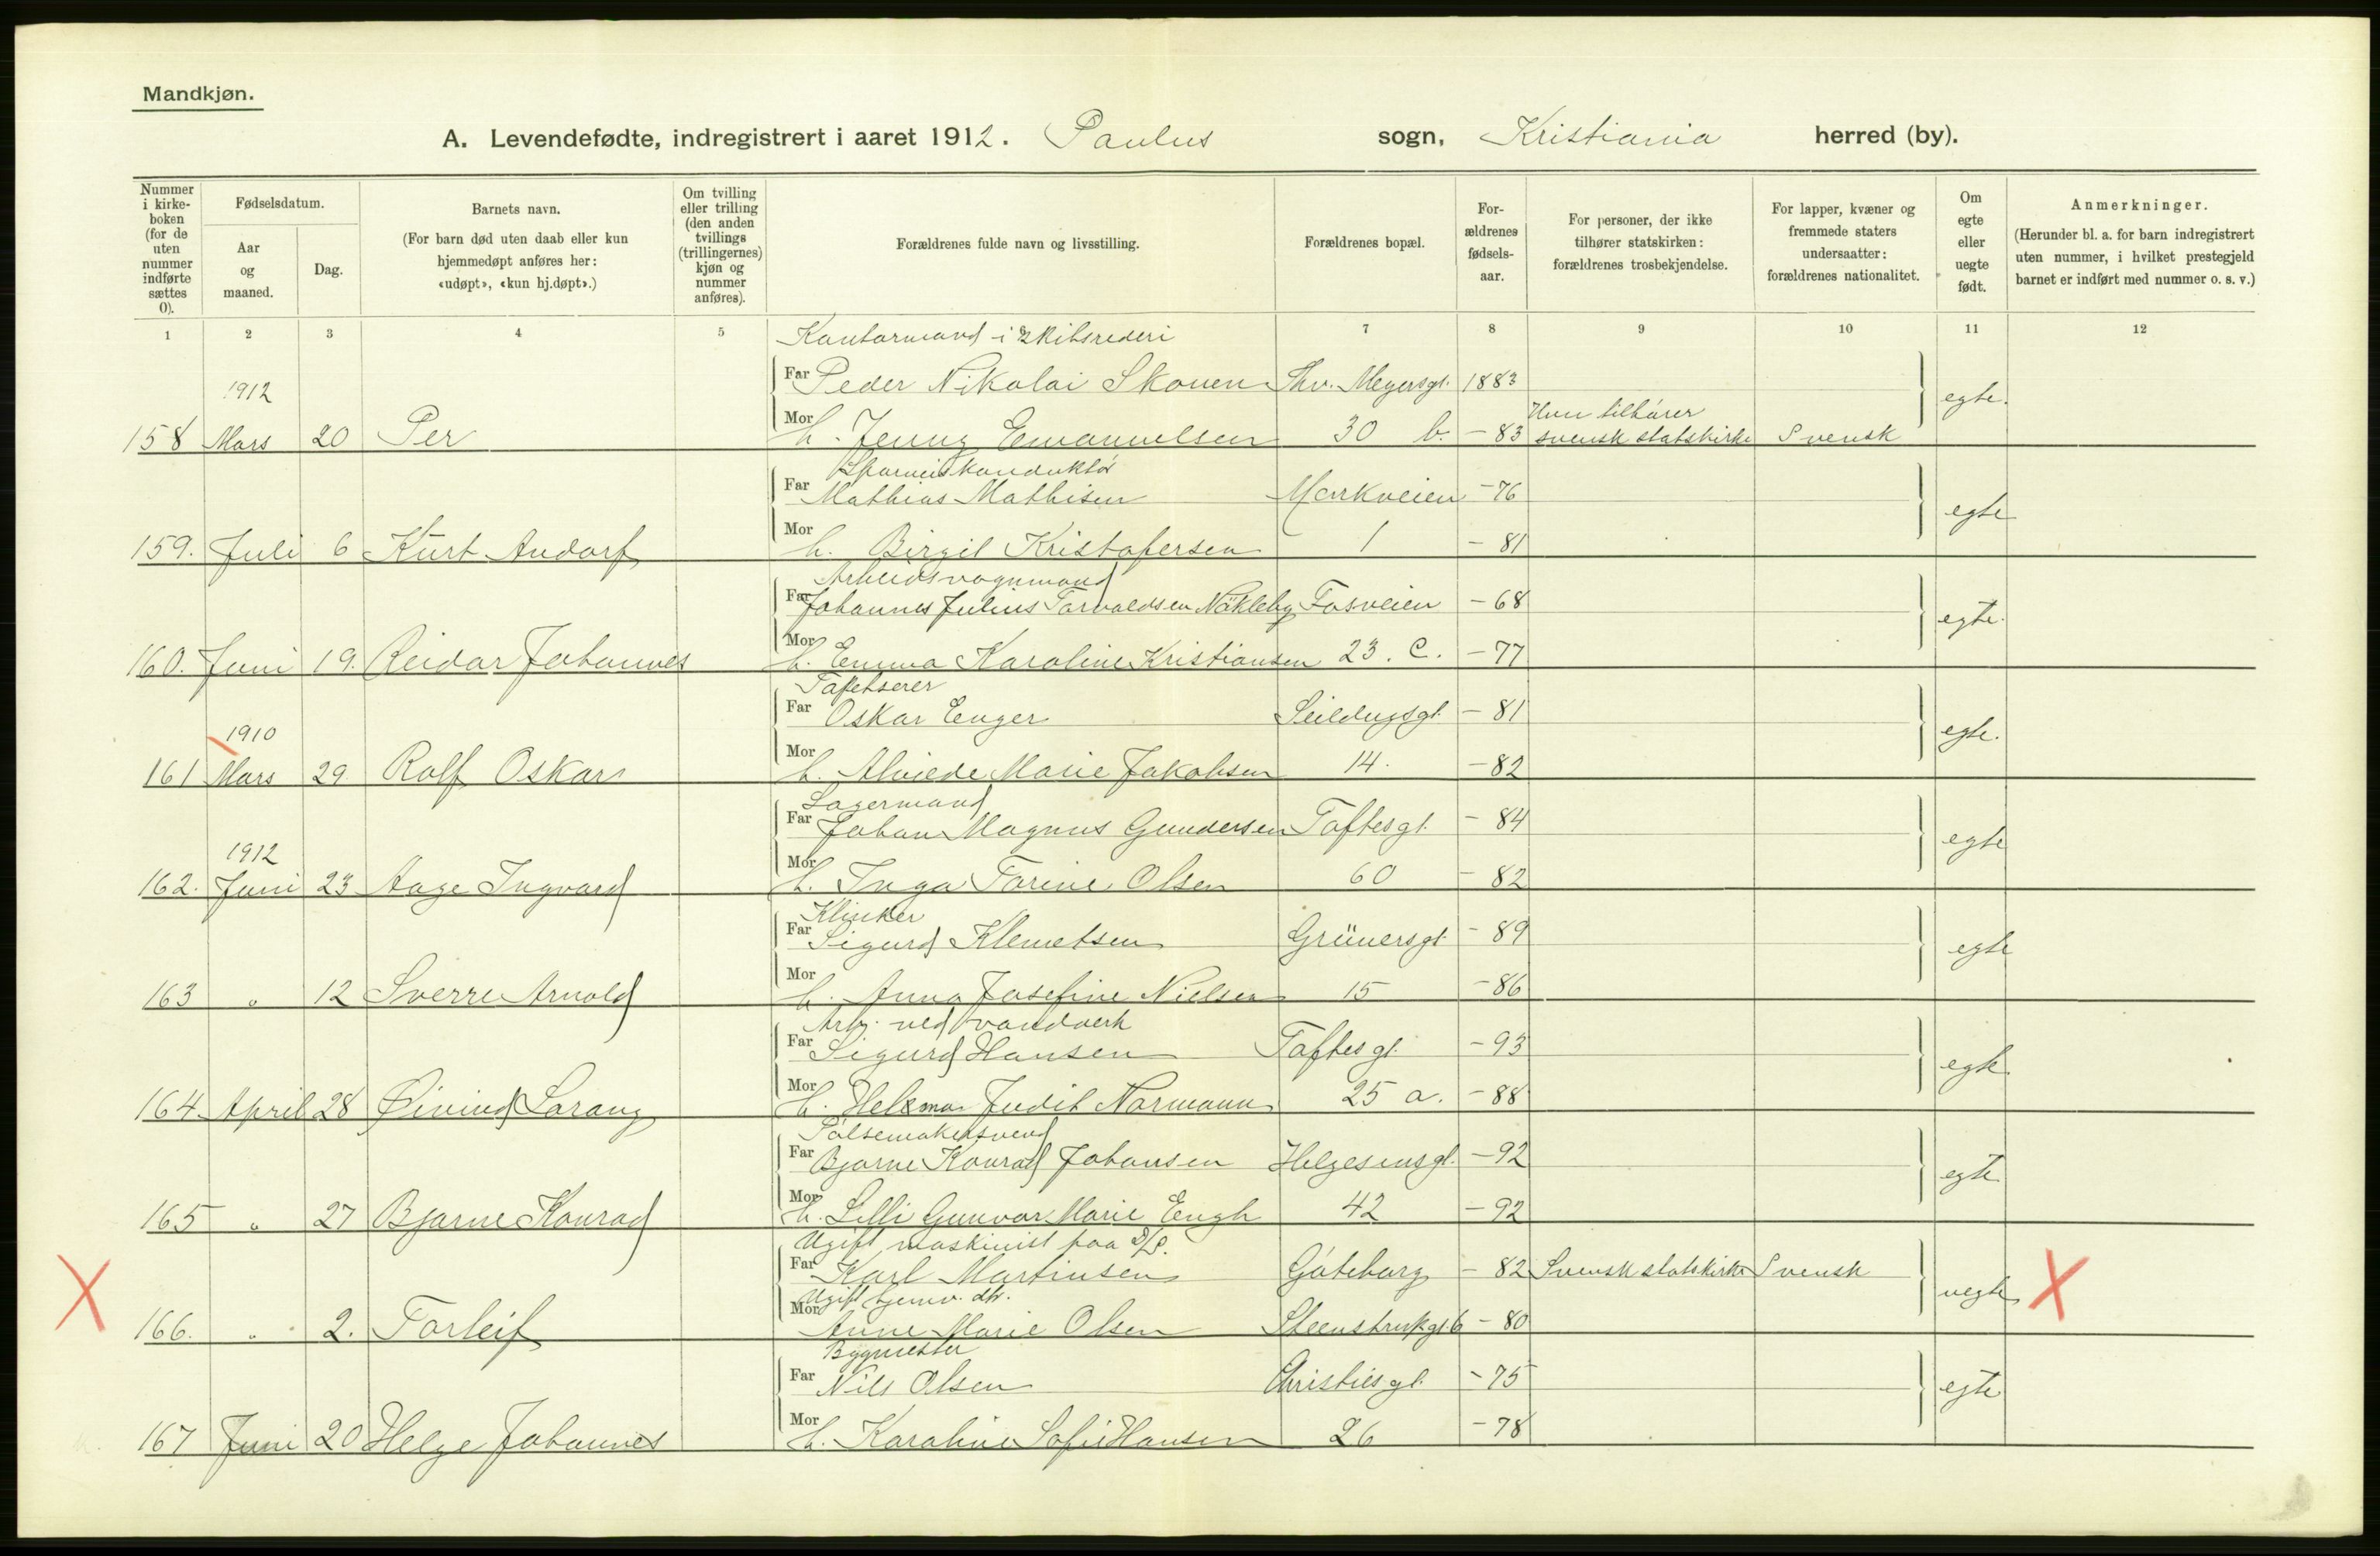 Mandkjøn.
A. Levendefødte, indregistrert i aaret 1912. Paulus sogn, Kristiania herred (by).
Nummer i kirkeboken (for de uten nummer indførte sættes 0).
Fødselsdatum.
Aar og maaned.
Dag.
Barnets navn.
(For barn død uten daab eller kun hjemmedøpt anføres her: «udøpt», «kun hj.døpt».)
Om tvilling eller trilling (den anden tvillings (trillingernes) kjøn og nummer anføres).
Forældrenes fulde navn og livsstilling.
Forældrenes bopæl.
Forældrenes fødselsaar.
For personer, der ikke tilhører statskirken: forældrenes trosbekjendelse.
For lapper, kvæner og fremmede staters undersaatter: forældrenes nationalitet.
Om egte eller uegte født.
Anmerkninger.
(Herunder bl. a. for barn indregistrert uten nummer, i hvilket prestegjeld barnet er indført med nummer o. s. v.)
1 2 3 4 5 7 8 9 10 11 12
Kontormand i skibsrederi
Far Peder Nikolai Skouen Thv. Meyersgt. 1883
1912 egte.
158 Mars 20 Per Mor h. Jenny Emanuelsen 30 b. - 83 Hun tilhører svensk statskirke Svensk
Sporveiskonduktør
Far Mathias Mathisen Markveien - 76
egte
159. Juli 6 Kurt Andorf Mor h. Birgit Kristofersen 1 - 81
Arbeidsvognmand
Far Johannes Julius Torvaldsen Näkleby Fosveien - 68
egte.
160. Juni 19. Reidar Johannes Mor h. Emma Karoline Kristiansen 23. C. - 77
Tapetserer
Far Oskar Enger Seildugsgt. - 81
1910 egte.
161 Mars 29 Rolf Oskar Mor h. Alviede Marie Jakobsen 14. - 82
Lagermand
Far Johan Magnus Gundersen Toftesgt. - 84
1912 egte
162. Juni 23 Aage Ingvard Mor h. Inga Torine Olsen 60 - 82
Klinker
Far Sigurd Klemetsen Grünersgt. - 89
egte
163 " 12 Sverre Arnold Mor h. Anna Josefine Nielsen 15 - 86
Arb. ved vandverk
Far Sigurd Hansen Toftesgt. - 93
egte
164 April 28 Øivind Sarang Mor h. Helma Judit Normann 25 a. - 88
Pølsemakersvend
Far Bjarne Konrad Johansen Helgesensgt. - 92
egte
165 " 27 Bjarne Konrad Mor h. Lilli Gunvor Marie Engh 42 - 92
Ugift, maskinist paa D/S.
Far Karl Martinsen Göteborg - 82 Svensk statskirke Svensk
X Ugift hjemv. dtr. uegte X
166. " 2. Torleif Mor Anne Marie Olsen Steenstrupgt. 6 - 80
Bygmester
Far Nils Olsen Christiesgt. - 75
egte
167 Juni 20 Helge Johannes Mor h. Karoline Sofie Hansen 26 - 78